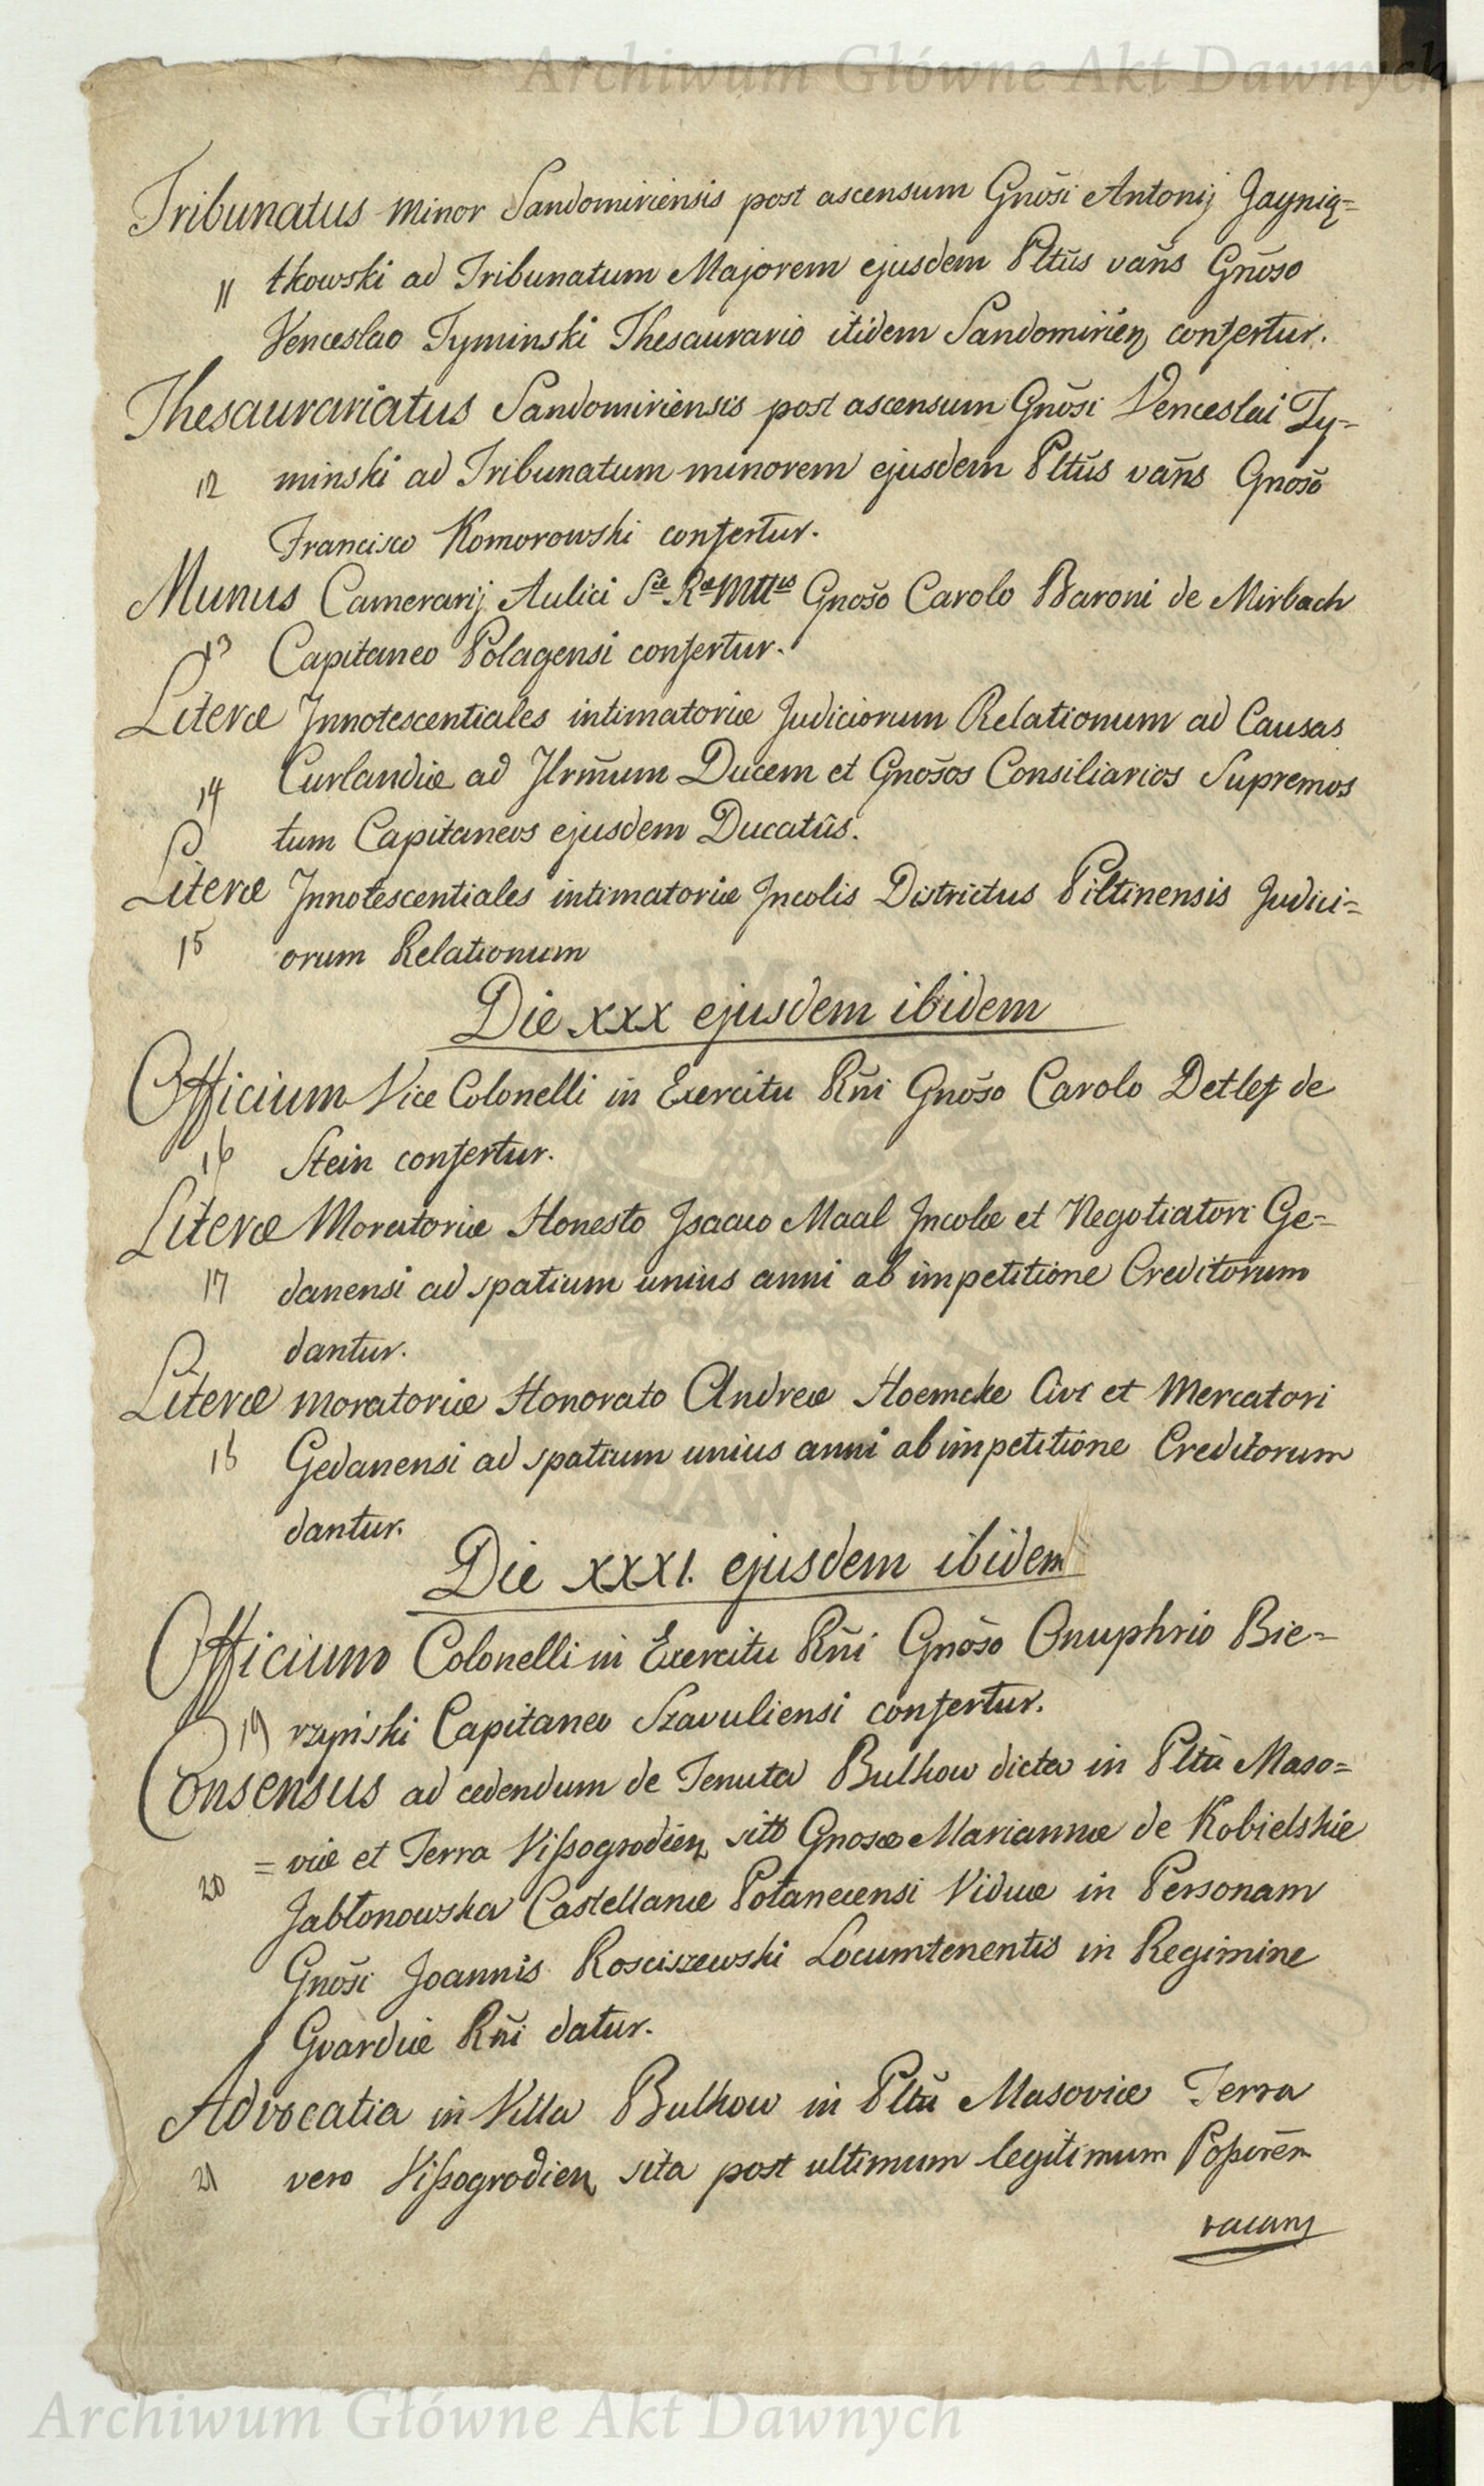 Archiwum Główne Akt Dawnych
Tribunatus minor Sandomiriensis post ascensum Gnõsi Antonij Jaynią=
11 tkowski ad Tribunatum Majorem ejusdem Pltũs vañs Gnõso
Venceslao Tyminski Thesaurario itidem Sandomirien confertur.
Thesaurariatus Sandomiriensis post ascensum Gnõsi Venceslai Ty=
12 minski ad Tribunatum minorem ejusdem Pltũs vañs Gnosõ
Francisco Komorowski confertur.
Munus Camerarij Aulici Sæ Ræ Mttis Gnošo Carolo Baroni de Mirbach
13 Capitaneo Polagensi confertur.
Literæ Innotescentiales intimatoriæ Judiciorum Relationum ad Causas
14 Curlandiæ ad Jlrm̃um Ducem et Gnõsos Consiliarios Supremos
tum Capitaneos ejusdem Ducatûs.
Literæ Innotescentiales intimatoriæ Incolis Districtus Piltinensis Judici=
15 orum Relationum
Die XXX ejusdem ibidem
Officium Vice Colonelli in Exercitu Rñi Gnõso Carolo Detlef de
16 Stein confertur.
Literæ Moratoriæ Honesto Isaaco Maal Incolæ et Negotiatori Ge=
17 danensi ad spatium unius anni ab impetitione Creditorum
dantur.
Literæ moratoriæ Honorato Andreæ Hoemcke Civi et Mercatori
18 Gedanensi ad spatium unius anni ab impetitione Creditorum
dantur.
Die XXXI. ejusdem ibidem
Officium Colonelli in Exercitu Rñi Gnõso Onuphrio Bie=
19 rzyński Capitaneo Szavuliensi confertur.
Consensus ad cedendum de Tenuta Bulkow dicta in Pltũ Maso=
20 =viæ et Terra Vißogrodien sito Gnosæ Mariannæ de Kobielskie
Jabłonowska Castellanæ Połanecensi Viduæ in Personam
Gnõsi Joannis Rosciszewski Locumtenentis in Regimine
Gvardiæ Rñi datur.
Advocatia in Villa Bulkow in Pltũ Masoviæ Terra
21 vero Vißogrodien sita post ultimum legitimum Poßorẽm
vacans
Archiwum Główne Akt Dawnych